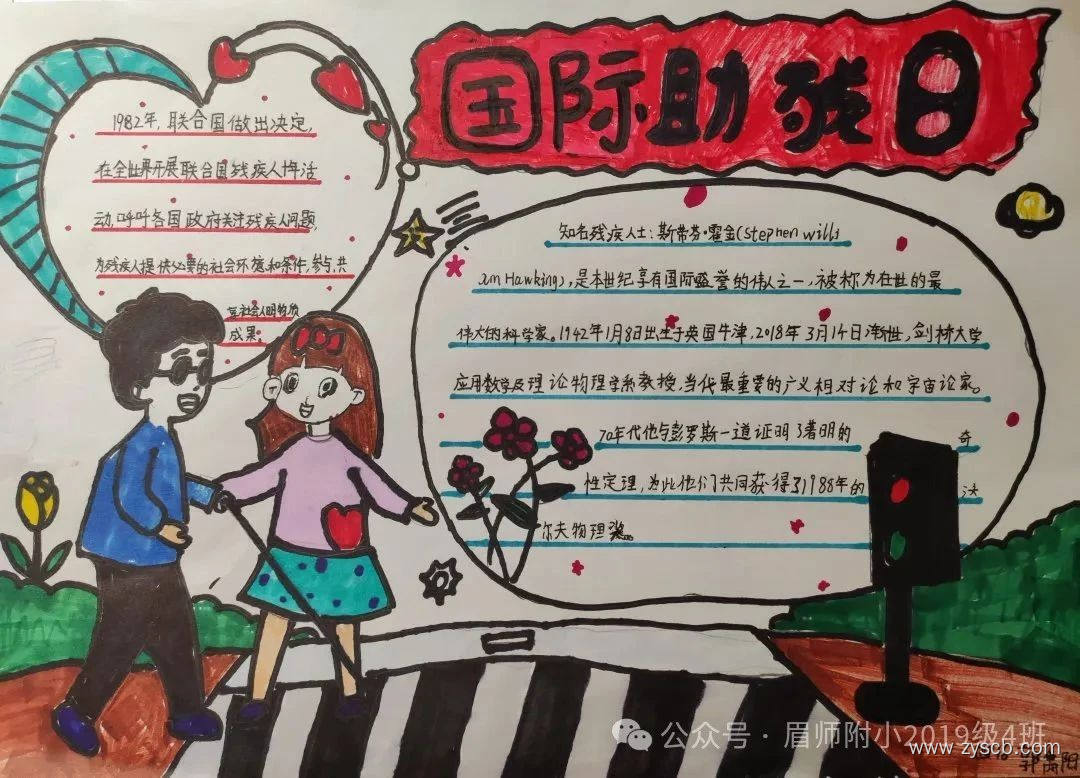 国际助残日
1982年，联合国做出决定，
在全世界开展联合国残疾人十年活
动，呼吁各国政府关注残疾人问题，
为残疾人提供必要的社会环境和条件，参与，共
享社会人明的
成果。
知名残疾人士：斯蒂芬·霍金（Stephen will
am Hawking），是本世纪享有国际盛誉的伟人之一，被称为在世的最
伟大的科学家。1942年1月8日出生于英国牛津，2018年3月14日逝世，剑桥大学
应用数学及理论物理学系教授，当代最重要的广义相对论和宇宙论家。
70年代他与彭罗斯一道证明了著明的 奇
性定理，为此他们共同获得了1988年的 沃
尔夫物理奖。
公众号·眉师附小2019级4班
www.zyscb.com